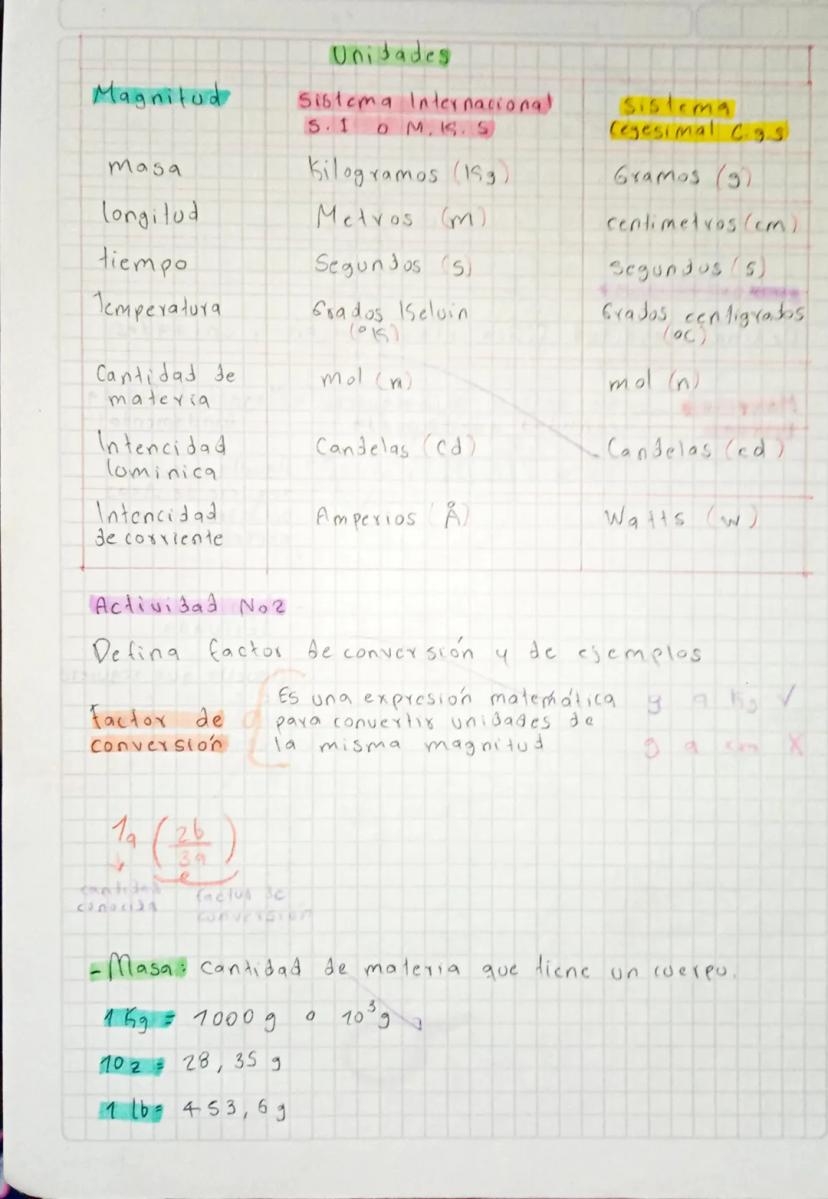 Unidades
Magnitud Sistema Internacional Sistema
S.I o M.K.S Cegesimal C.g.s
masa Kilogramos (Kg) Gramos (g)
longitud Metros (m) centimetros (cm)
tiempo Segundos (s) Segundos (s)
Temperatura Grados Kelvin Grados centigrados
(°K) (°C)
Cantidad de mol (n) mol (n)
materia
Intencidad Candelas (cd) Candelas (cd)
lominica
Intencidad Amperios (Å) Watts (w)
de corriente
Actividad No2
Defina factor de conversión y de ejemplos
Es una expresión matemática g a Kg ✓
factor de para convertir unidades de
conversión la misma magnitud g a cm X
1a (2b/3a)
cantidad factor de
conocida conversion
- Masa: Cantidad de materia que tiene un cuerpo.
1 Kg = 1000 g o 10³g
1oz = 28,35 g
1 lb = 453,6 g